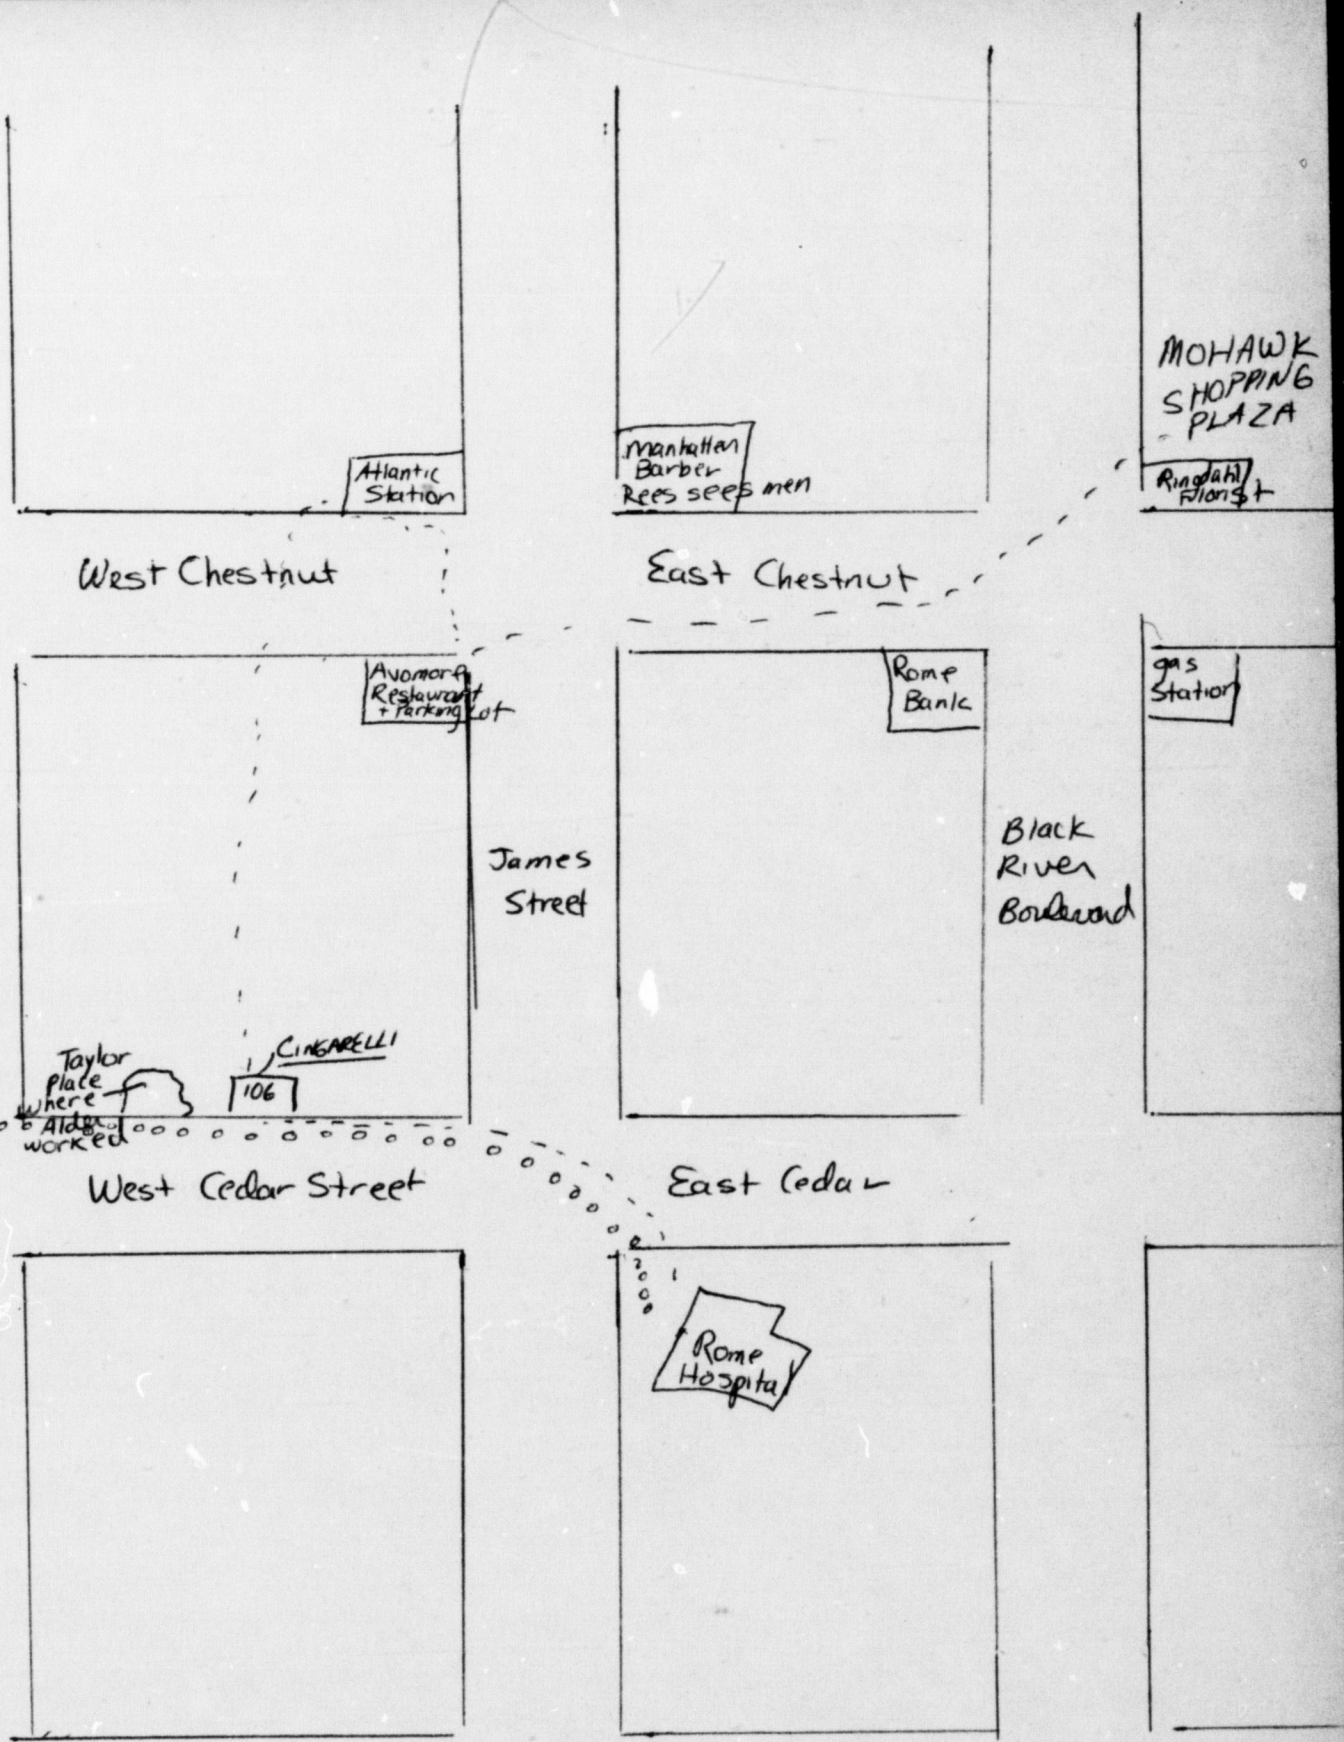 MOHAWK
SHOPPING
PLAZA
Atlantic
Station
Manhatten
Barber
Rees sees men
Ringdahl
Florist
West Chestnut
East Chestnut
Restaurant
+ Parking Lot
Rome
Bank
gas
Station
James
Street
Black
River
Boulevard
CINGARELLI
106
Taylor
Place
where
worked
West Cedar Street
East Cedar
Rome
Hospital